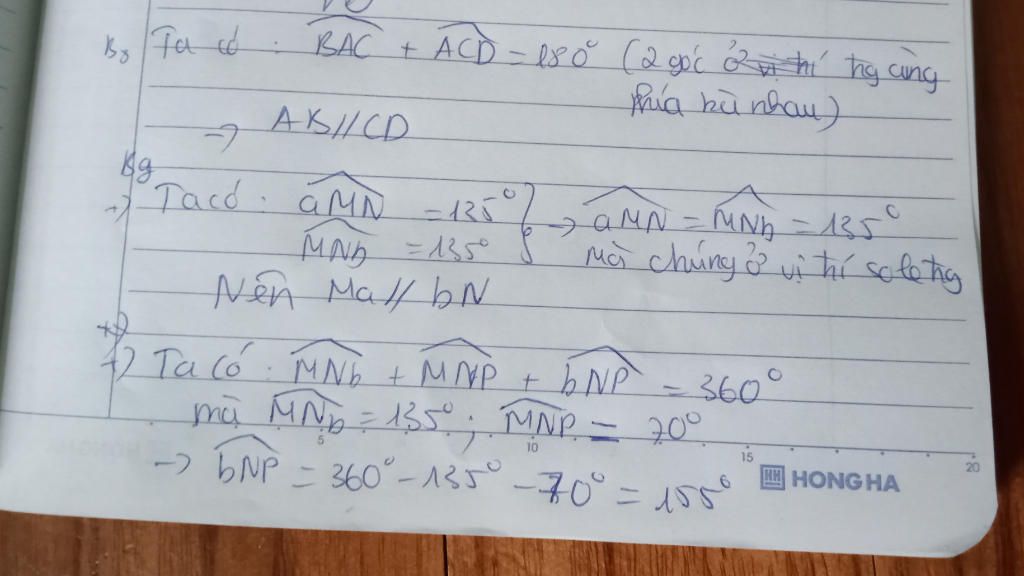 B8 Ta có : BAC + ACD = 180° (2 góc ở tng cùng
phía bù nhau)
→ AB//CD
B9
→) Ta có : aMN = 135° } → aMN = MNb = 135°
MNb = 135° mà chúng ở vị trí so le tng
Nên Ma // bN
+) Ta Có : MNb + MNP + bNP = 360°
mà MNb = 135° ; MNP = 70°
→ bNP = 360° - 135° - 70° = 155°
5 10 15 20
HONG HA